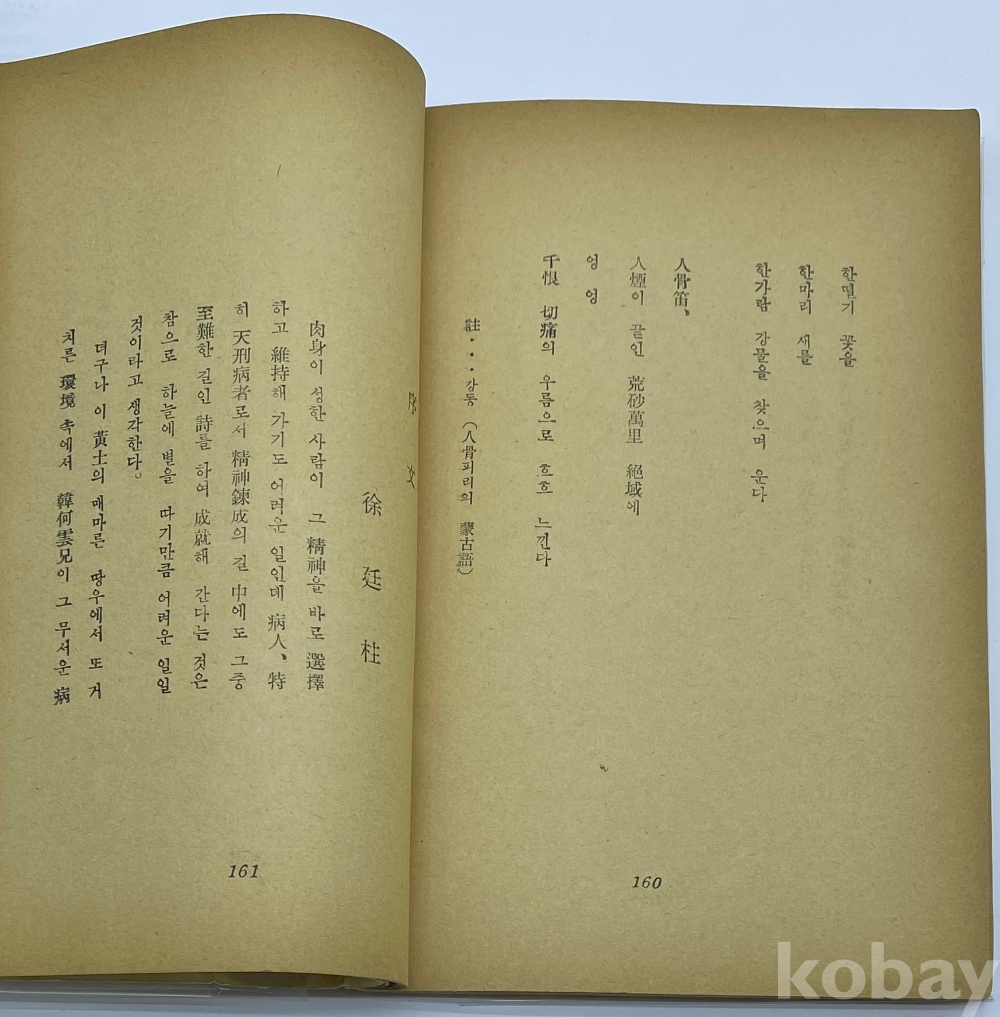 한떨기 꽃을
한마리 새를
한가람 강물을 찾으며 운다
人骨笛、
人煙이 끝인 荒砂萬里 絕域에
엉 엉
千恨 切痛의 우름으로 흐흐 느낀다
註・・・강동 (人骨피리의 蒙古語)
160
文
徐廷柱
肉身이 성한 사람이 그 精神을 바로 選擇
하고 維持해 가기도 어려운 일인데 病人、特
히 天刑病者로서 精神鍊成의 길 中에도 그중
至難한 길인 詩를 하여 成就해 간다는 것은
참으로 하늘에 별을 따기만큼 어려운 일일
것이라고 생각한다。
더구나 이 黃土의 매마른 땅우에서 또 거
치른 環境 속에서 韓何雲兄이 그 무서운 病
161
kobay